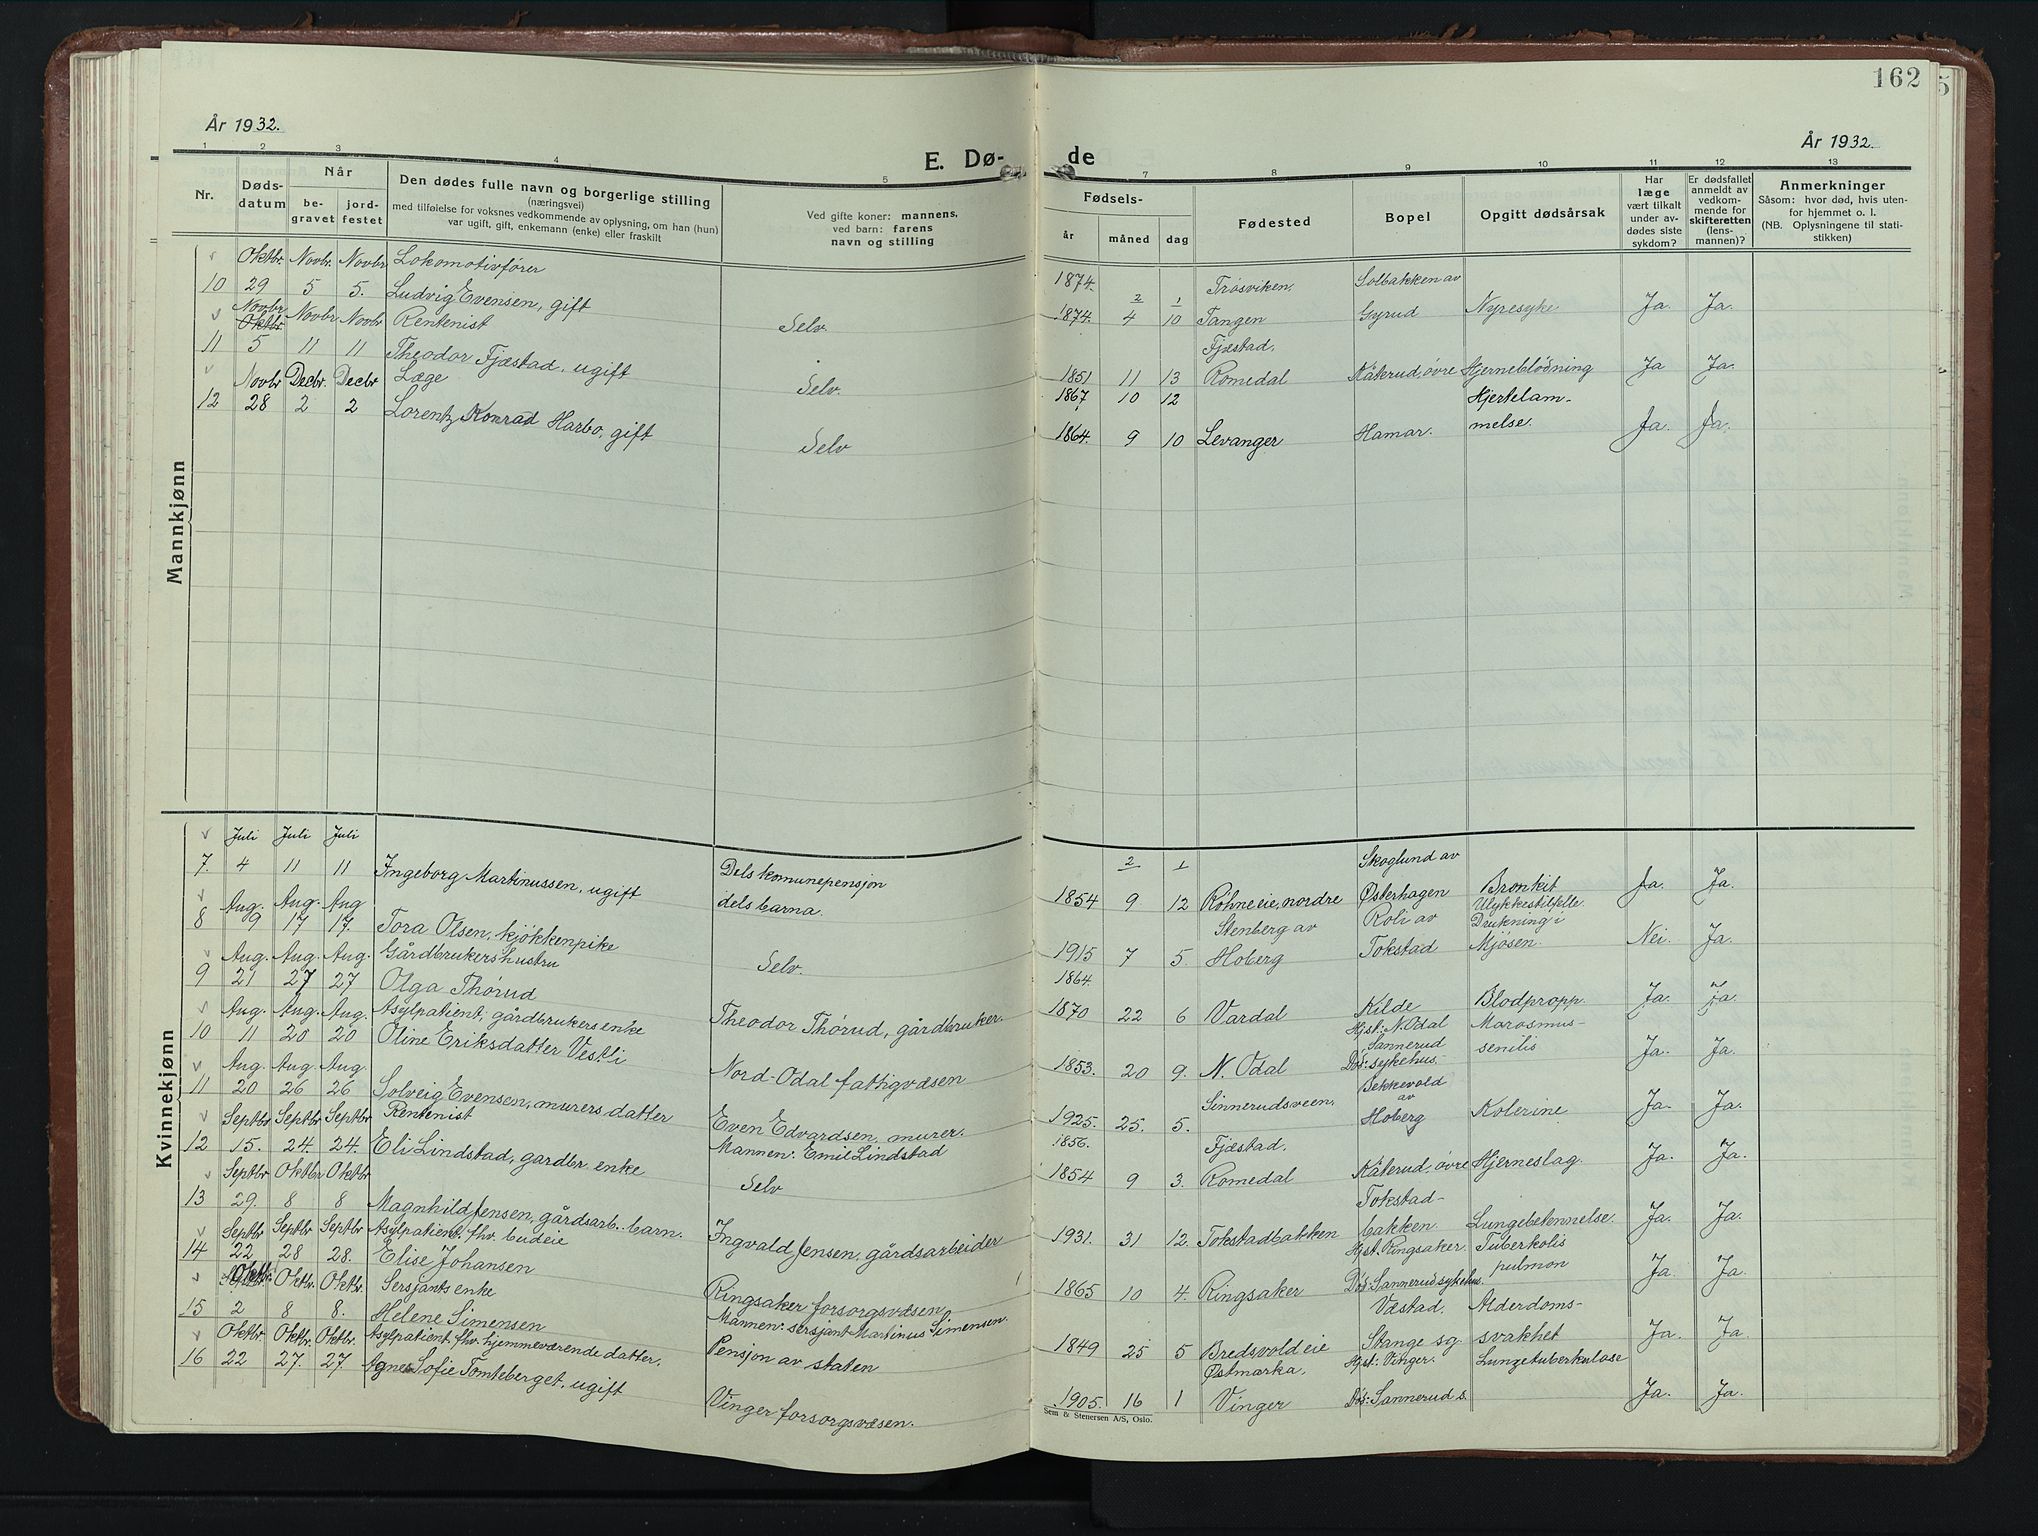 162
År 1932.
År 1932.
E. Dø-
de
1 2 3 4 5 7 8 9 10 11 12 13
Nr. Døds-datum Når be-gravet jord-festet Den dødes fulle navn og borgerlige stilling (næringsvei) med tilføielse for voksnes vedkommende av oplysning, om han (hun) var ugift, gift, enkemann (enke) eller fraskilt Ved gifte koner: mannens, ved barn: farens navn og stilling
Fødsels- år måned dag Fødested Bopel Opgitt dødsårsak Har læge vært tilkalt under av-dødes siste sykdom? Er dødsfallet anmeldt av vedkom-mende for skifteretten (lens-mannen)? Anmerkninger Såsom: hvor død, hvis uten-for hjemmet o. l. (NB. Oplysningene til stati-stikken)
Mannkjønn
Oktbr. Novbr. Novbr Lokomotivfører
10 29 5 5. Ludvig Evensen, gift Selv. 1874. 1874. 2/4 1/10 Trosviken, Tangen Solbakken av Gyrud Nyresyke Ja. Ja.
Novbr Oktbr. Novbr Novbr Rentenist
11 5 11 11 Theodor Fjæstad, ugift Selv. 1851 11 13 Fjæstad, Romedal Kåterud, øvre Hjerneblödning Ja Ja.
Novbr Decbr. Decbr Læge
12 28 2 2 Lorentz Konrad Harbo, gift Selv 1867 10 12 1864. 9 10 Levanger Hamar. Hjertelam-melse. Ja. Ja.
Kvinnekjønn
Juli Juli Juli
7. 4 11 11 Ingeborg Martinussen, ugift Dels komunepensjon dels barna. 1854 2/9 1/12 Rohneeie, nordre Skoglund av Østerhagen Bronkit Ja. Ja.
Aug. Aug. Aug
8 9 17 17. Tora Olsen, kjökkenpike Selv. 1915 7 5. Stenberg av Hoberg Roli av Tokstad Ulykkestilfelle. Drukning i Mjøsen. Nei. Ja.
Aug. Aug. Aug. Gårdbrukers hustru
9 21 27 27 Olga Thørud Theodor Thørud, gårdbruker. 1864. 1870 22 6 Vardal Kilde Blodpropp. Ja. Ja.
Aug. Aug. Aug. Asylpatient, gårdbrukers enke
10 11 20 20 Oline Eriksdatter Vestli Nord-Odal fattigvæsen 1853. 20 9. N. Odal Hjst: N. Odal Sannerud Dds: sykehus. Marasmus-senilis Ja. Ja.
Aug. Aug. Aug.
11 20 26 26 Solveig Evensen, murers datter Even Edvardsen, murer. 1925. 25. 5. Sinnerudsveen, Bekkevold av Hoberg Kolerine Ja. Ja.
Septbr Septbr Septbr Rentenist
12 15. 24. 24. Eli Lindstad, gardbr. enke Mannen: Emil Lindstad Selv 1856. 1854 9 3. Fjæstad, Romedal Kåterud, øvre Hjerneslag. Ja. Ja.
Septbr Oktbr Oktbr
13 29. 8 8 Magnhild Jensen, gårdsarb. barn. Ingvald Jensen, gårdsarbeider 1931. 31 12. Tokstadbakken Tokstad-bakken. Lungebetennelse. Ja. Ja.
Septbr Septbr Septbr Asylpatient, fhv. budeie
14 22 28 28. Elise Johansen Ringsaker forsorgsvæsen 1865 10 4. Ringsaker Hjst. Ringsaker. Dds: Sannerud sykehus. Tuberkolis pulmon Ja. Ja.
Oktbr. Oktbr. Oktbr. Sersjants enke
15 2 8 8. Helene Simensen Mannen: sersjant Martinus Simensen. Pensjon av staten 1849 25 5 Bredsvoldeie Væstad, Stange sg Alderdoms-svakhet Ja. Ja.
Oktbr Oktbr. Oktbr. Asylpatient, fhv. hjemmeværende datter.
16 22 27. 27. Agnes Sofie Tomteberget, ugift Vinger forsorgsvæsen. 1905. 16 1 Østmarka, Vinger Hjst: Vinger. Dds: Sannerud s. Lungetuberkulose Ja. Ja.
Sem & Stenersen A/S, Oslo.